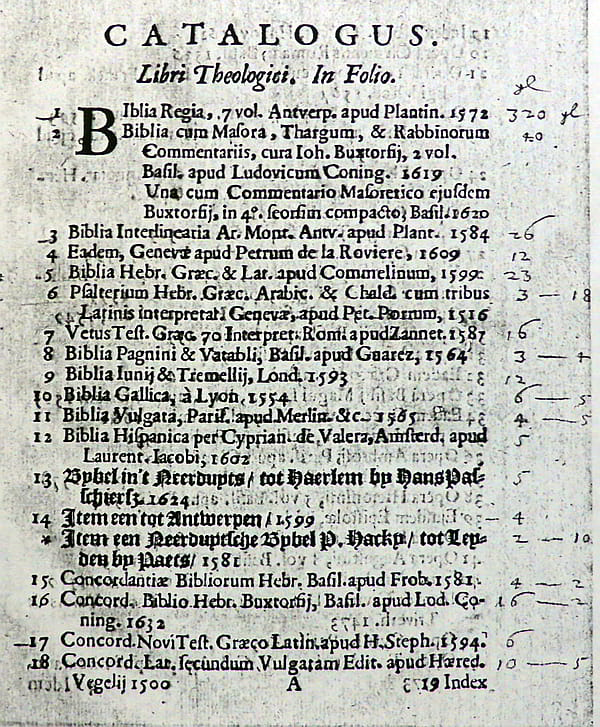 CATALOGUS.
Libri Theologici. In Folio.
gl
1 BIblia Regia, 7 vol. Antverp. apud Plantin. 1572 320 gl
2 Biblia cum Masora, Thargum, & Rabbinorum 40
Commentariis, cura Ioh. Buxtorfij, 2 vol.
Basil. apud Ludovicum Coning. 1619
Una cum Commentario Masoretico ejusdem
Buxtorfij, in 4°. seorsim compacto, Basil. 1620
3 Biblia Interlinearia Ar. Mont. Antv. apud Plant. 1584 26
4 Eadem, Genevæ apud Petrum de la Roviere, 1609 12
5 Biblia Hebr. Græc. & Lat. apud Commelinum, 1599 23
6 Psalterium Hebr. Græc. Arabic. & Chald. cum tribus 3 — 18
Latinis interpretat. Genevæ, apud Pet. Porrum, 1516
7 Vetus Test. Græc. 70 Interpret. Rom. apud Zannet. 1587 16
8 Biblia Pagnini & Vatabli, Basil. apud Guarez, 1564 3 — 4
9 Biblia Iunij & Tremellij, Lond. 1593 12
10 Biblia Gallica, à Lyon, 1554 6 — 5
11 Biblia Vulgata, Paris. apud Merlin. &c. 1565 4 — 5
12 Biblia Hispanica per Cyprian. de Valera, Amsterd. apud 5
Laurent. Iacobi, 1602
13 Bybel in't Neerdupts / tot Haerlem by Hans Pas- 5
schiersz. 1624
14 Item een tot Antwerpen / 1599 — 4
* Item een Neerduptsche Bybel P. Hackp / tot Ley- 2 — 10
den by Paets / 1581
15 Concordantiæ Bibliorum Hebr. Basil. apud Frob. 1581 4 — 2
16 Concord. Biblio. Hebr. Buxtorfij, Basil. apud Lod. Co- 16 — 2
ning. 1632
17 Concord. Novi Test. Græco Latin. apud H. Steph. 1594. 6
18 Concord. Lat. secundum Vulgatam Edit. apud Hæred. 10 — 5
Vegelij 1500 A 19 Index